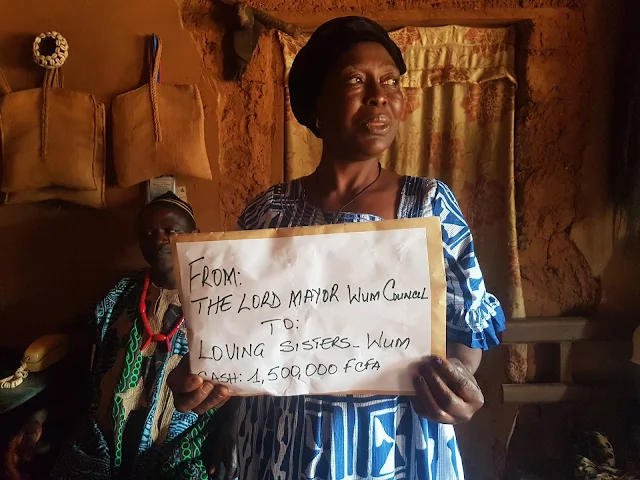 FROM:
THE LORD MAYOR WUM COUNCIL
TO:
LOVING SISTERS_ WUM
CASH: 1,500,000 FCFA